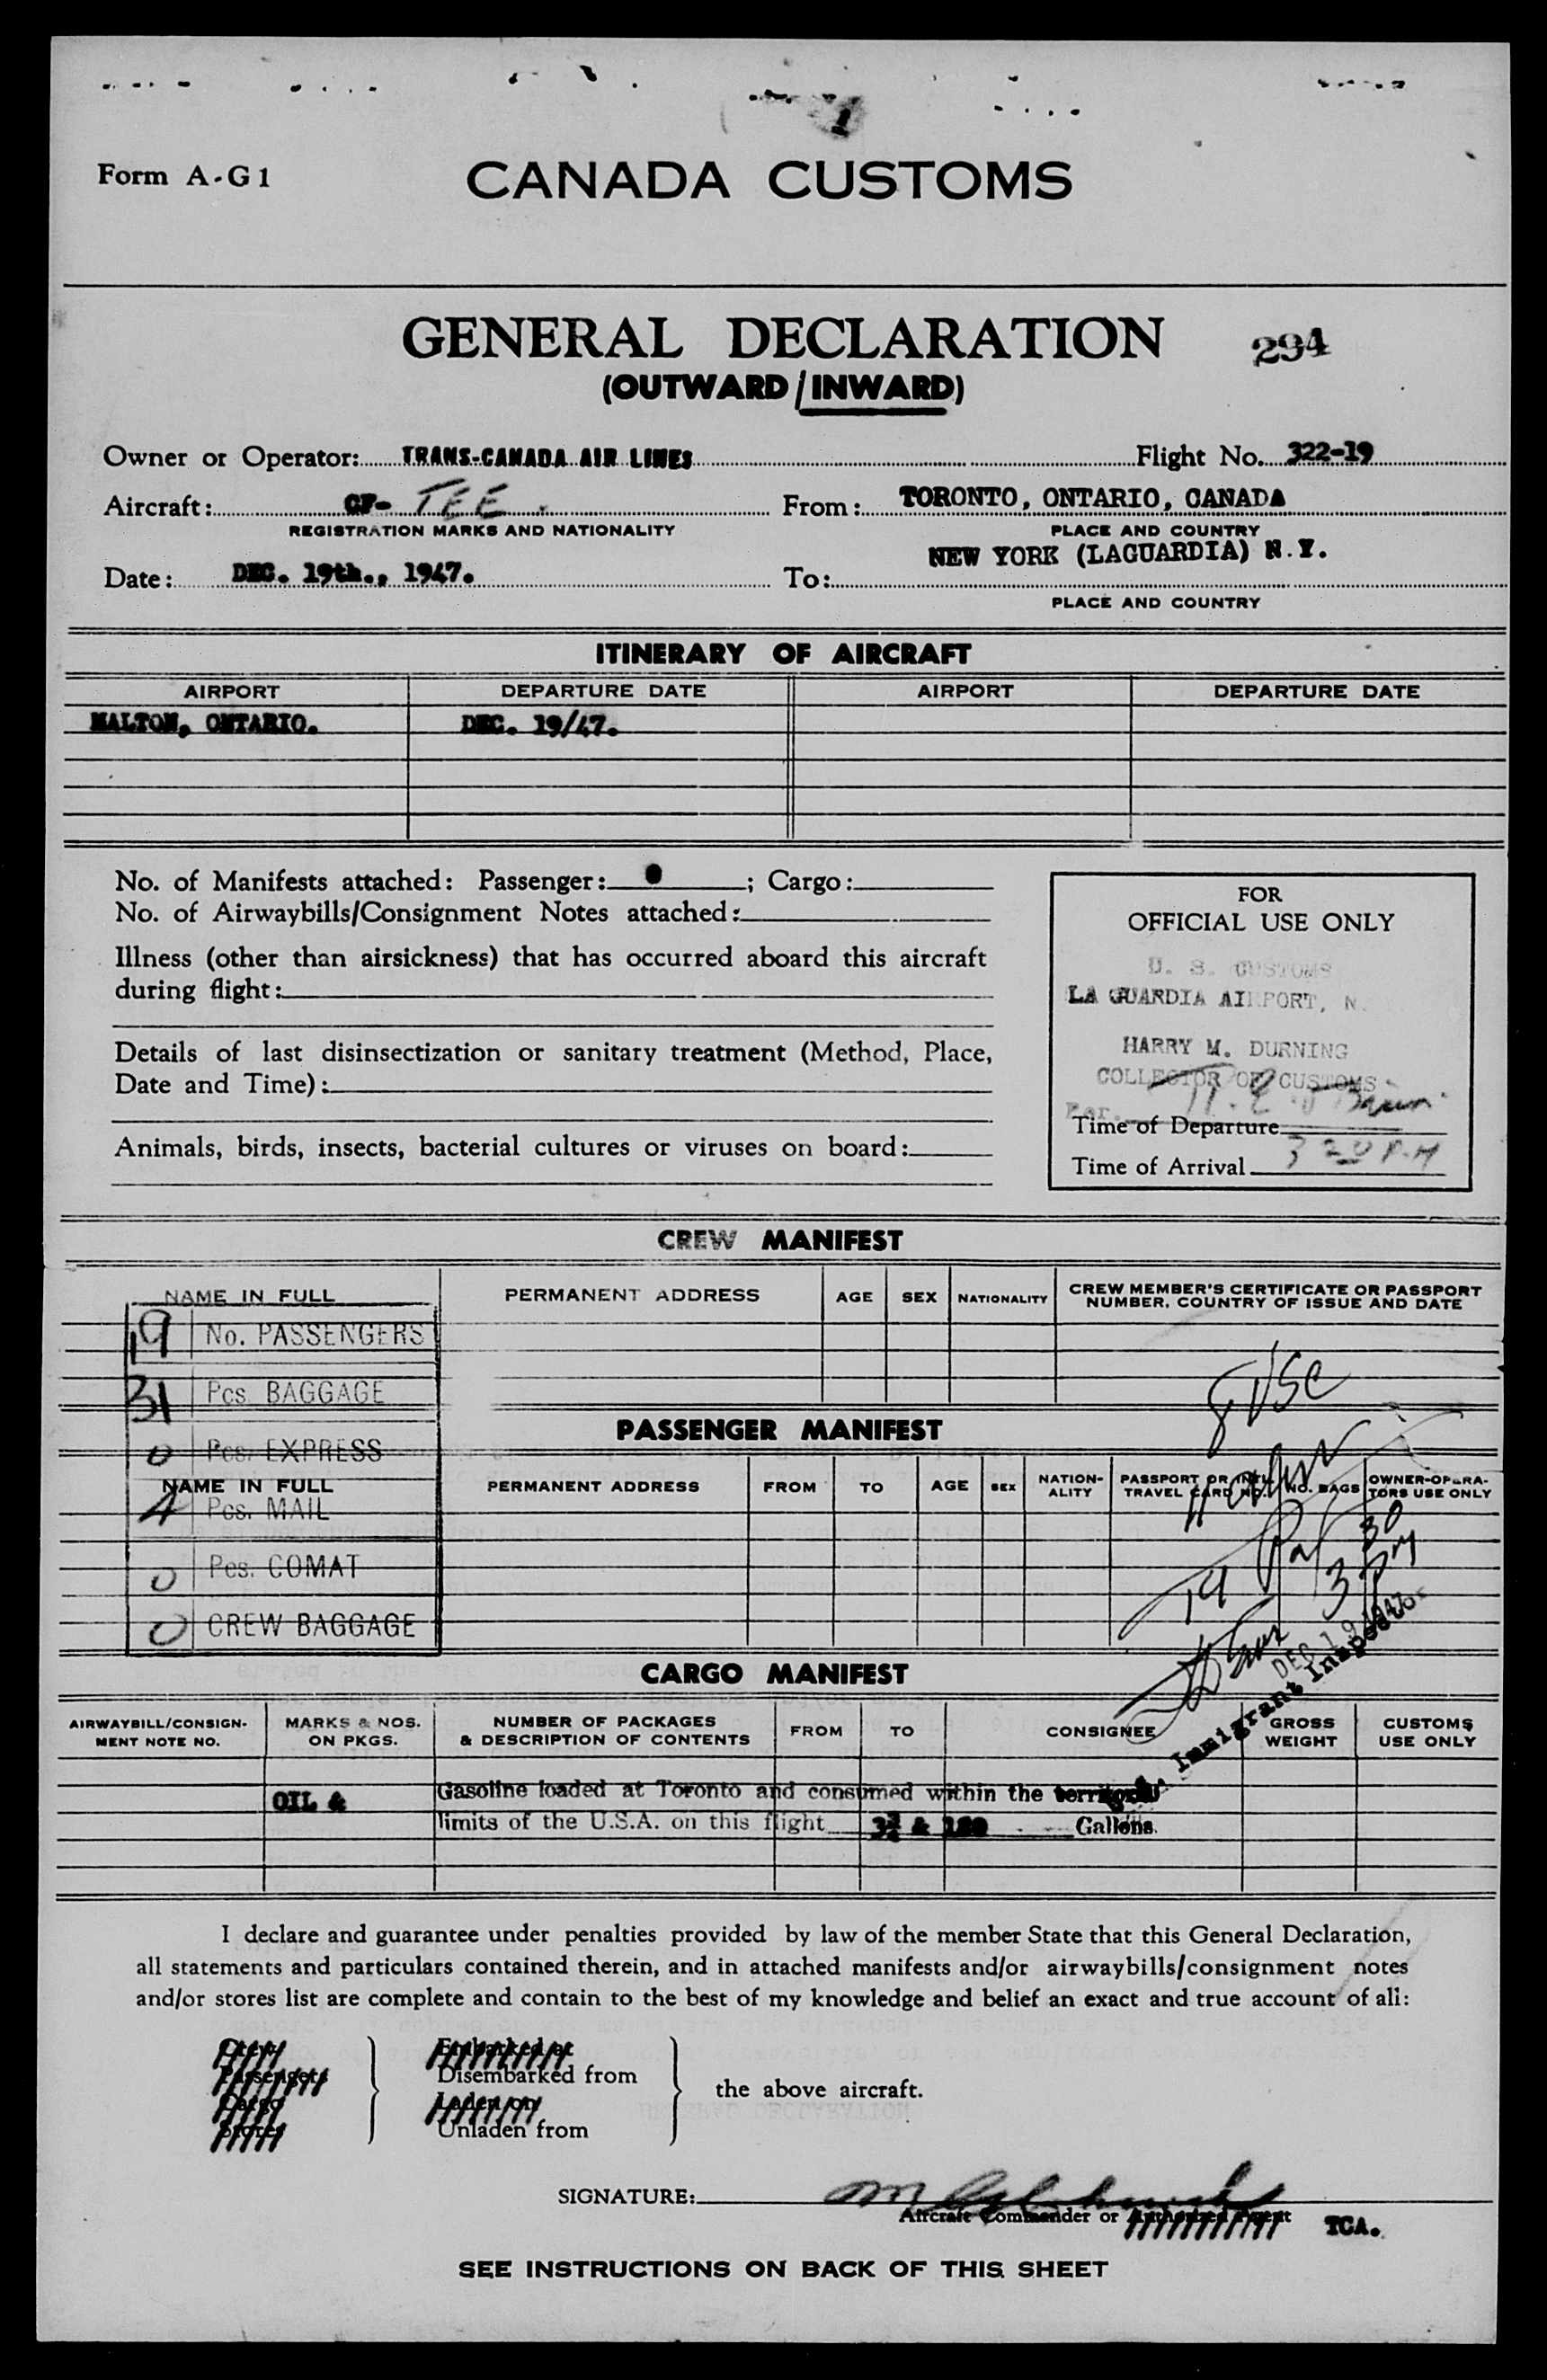 1
Form A-G1
CANADA CUSTOMS
GENERAL DECLARATION 294
(OUTWARD/INWARD)
Owner or Operator: TRANS-CANADA AIR LINES Flight No. 322-19
Aircraft: CF- TEE. From: TORONTO, ONTARIO, CANADA
REGISTRATION MARKS AND NATIONALITY PLACE AND COUNTRY
NEW YORK (LAGUARDIA) N.Y.
Date: DEC. 19th., 1947. To:
PLACE AND COUNTRY
ITINERARY OF AIRCRAFT
AIRPORT DEPARTURE DATE AIRPORT DEPARTURE DATE
MALTON, ONTARIO. DEC. 19/47.
No. of Manifests attached: Passenger: ; Cargo:
No. of Airwaybills/Consignment Notes attached:
Illness (other than airsickness) that has occurred aboard this aircraft
during flight:
Details of last disinsectization or sanitary treatment (Method, Place,
Date and Time):
Animals, birds, insects, bacterial cultures or viruses on board:
FOR
OFFICIAL USE ONLY
U. S. CUSTOMS
LA GUARDIA AIRPORT, N.
HARRY M. DURNING
COLLECTOR OF CUSTOMS
Per.
Time of Departure
Time of Arrival 3 20 P.M
CREW MANIFEST
NAME IN FULL PERMANENT ADDRESS AGE SEX NATIONALITY CREW MEMBER'S CERTIFICATE OR PASSPORT
NUMBER, COUNTRY OF ISSUE AND DATE
19 No. PASSENGERS
31 Pcs. BAGGAGE
0 Pcs. EXPRESS
4 Pcs. MAIL
0 Pcs. COMAT
0 CREW BAGGAGE
8 USC
PASSENGER MANIFEST
NAME IN FULL PERMANENT ADDRESS FROM TO AGE SEX NATION-
ALITY PASSPORT OR INT'L
TRAVEL CARD NO. NO. BAGS OWNER-OPERA-
TORS USE ONLY
19 3 30 PM
DEC 19 1947
Immigrant Inspector
CARGO MANIFEST
AIRWAYBILL/CONSIGN-
MENT NOTE NO. MARKS & NOS.
ON PKGS. NUMBER OF PACKAGES
& DESCRIPTION OF CONTENTS FROM TO CONSIGNEE GROSS
WEIGHT CUSTOMS
USE ONLY
OIL & Gasoline loaded at Toronto and consumed within the territorial
limits of the U.S.A. on this flight 3¾ & 180 Gallons.
I declare and guarantee under penalties provided by law of the member State that this General Declaration,
all statements and particulars contained therein, and in attached manifests and/or airwaybills/consignment notes
and/or stores list are complete and contain to the best of my knowledge and belief an exact and true account of all:
Crew Embarked at
Passengers Disembarked from
Cargo Laden on
Stores Unladen from
the above aircraft.
SIGNATURE:
Aircraft Commander or Authorized Agent TCA.
SEE INSTRUCTIONS ON BACK OF THIS SHEET